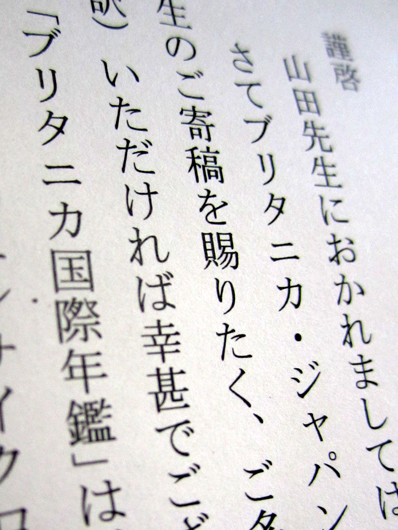 謹啓
山田先生におかれましては
さてブリタニカ・ジャパン
生のご寄稿を賜りたく、ご多
訳）いただければ幸甚でござ
「ブリタニカ国際年鑑」は
ンサイクロ